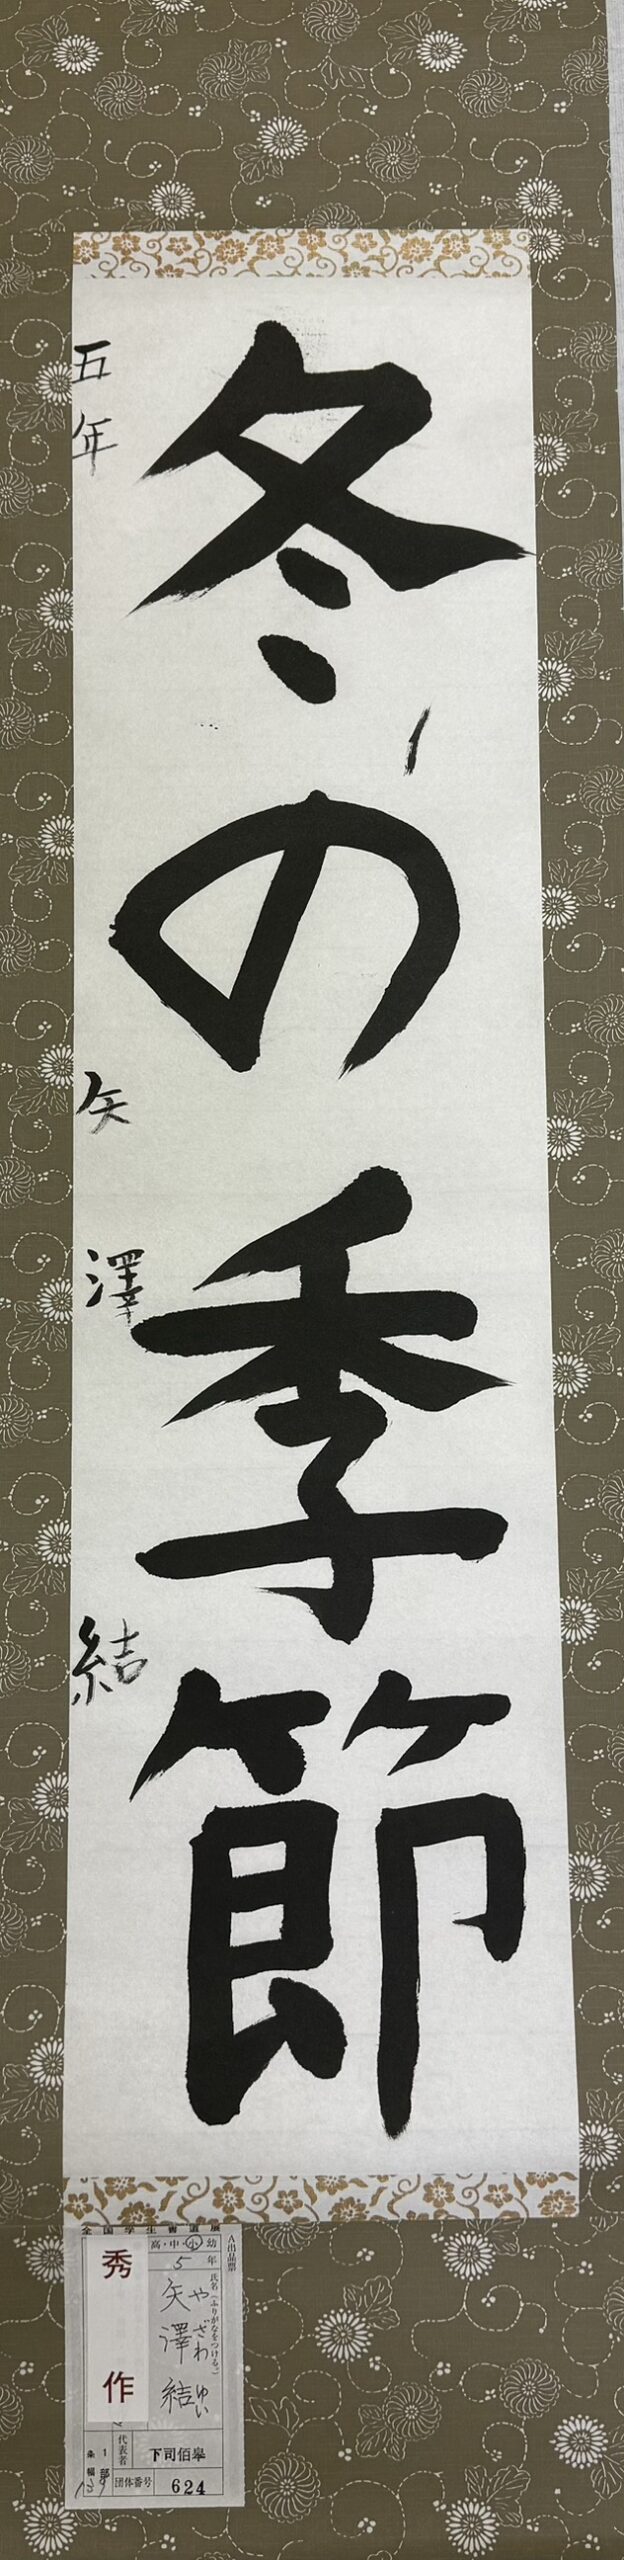 冬の季節
五年 矢澤 結
全国学生書道展
A出品票
秀作
高・中・小・幼
5年
氏名(ふりがなをつける。)
矢澤結
やざわゆい
1部
条幅
代表者
下司佰皋
団体番号
624